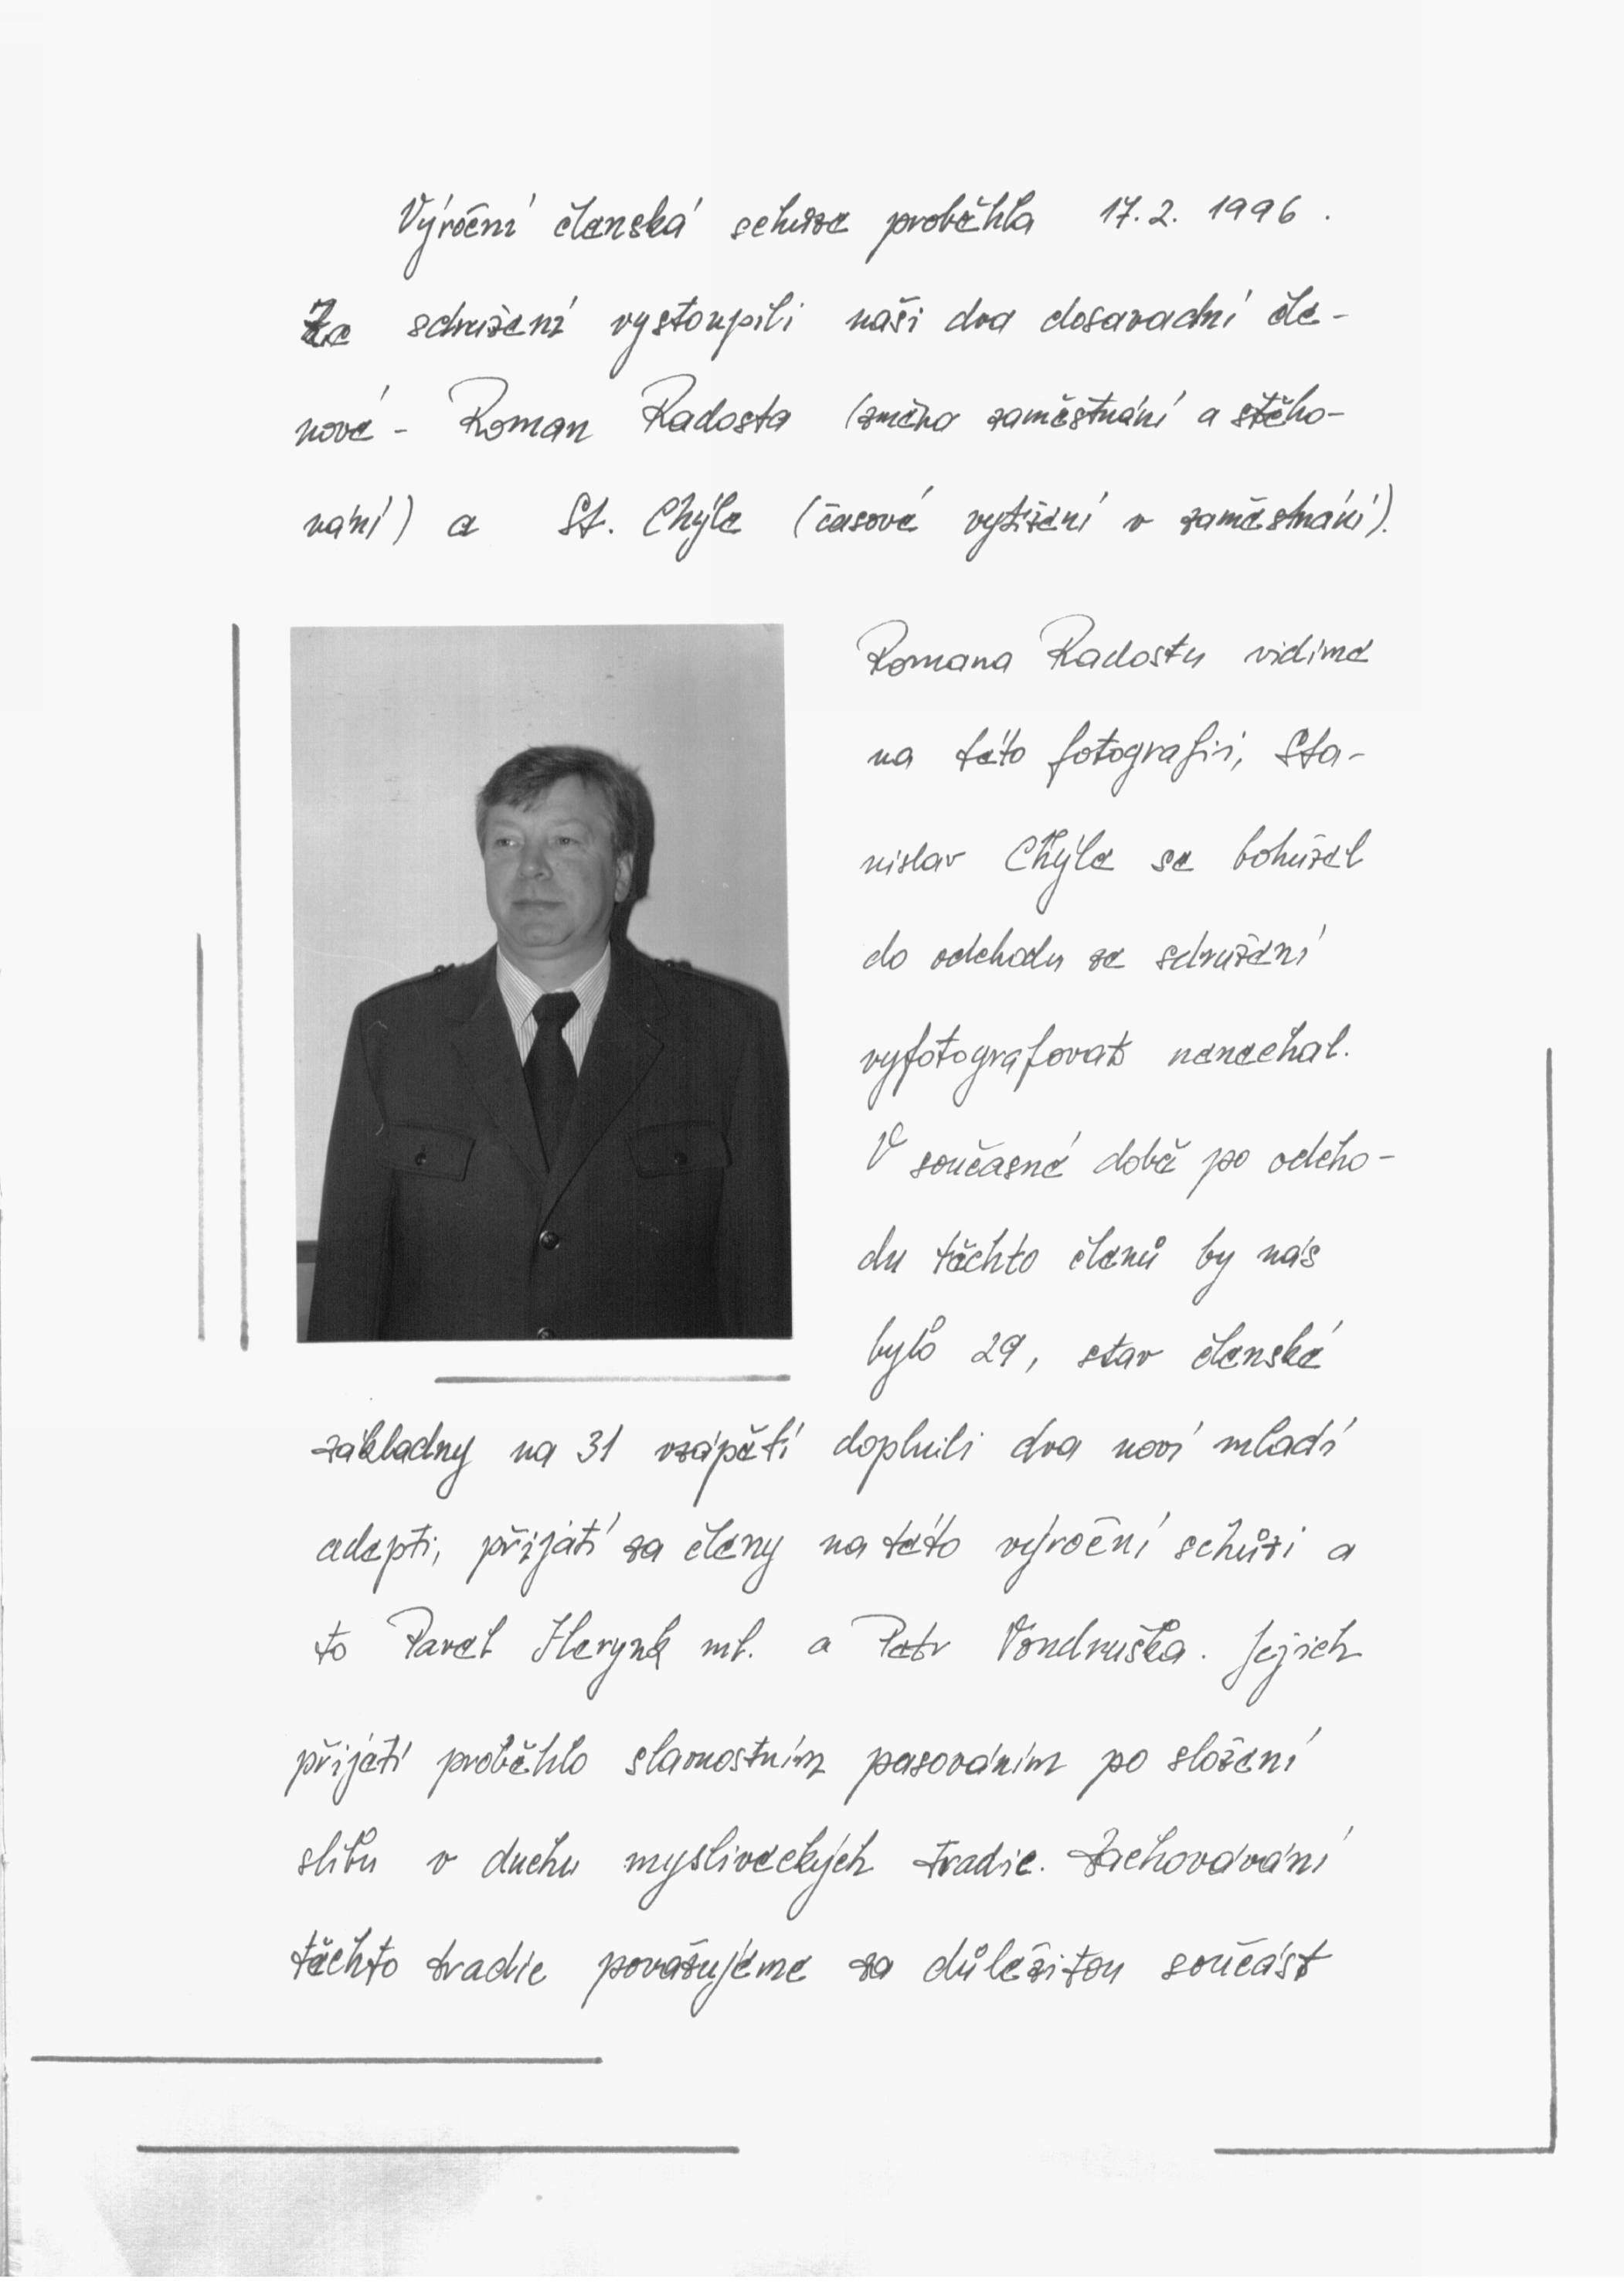 Výroční členská schůze proběhla 17.2. 1996.
Ze sdružení vystoupili naši dva dosavadní čle-
nové - Roman Radosta (změna zaměstnání a stěho-
vání) a St. Chýle (časové vytížení v zaměstnání).
Romana Radostu vidíme
na této fotografii, Sta-
nislav Chýle se bohužel
do odchodu ze sdružení
vyfotografovat nenechal.
V současné době po odcho-
du těchto členů by nás
bylo 29, stav členské
základny na 31 vzápětí doplnili dva noví mladí
adepti, přijatí za členy na této výroční schůzi a
to Pavel Herynk ml. a Petr Vondruška. Jejich
přijetí proběhlo slavnostním pasováním po složení
slibu v duchu mysliveckých tradic. Zachovávání
těchto tradic považujeme za důležitou součást